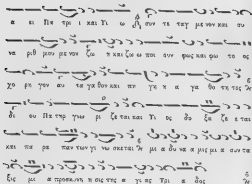 α ει Πα τρι και Υι ω συν τε ταγ με νον και συ
να ριθ μου με νον ζω η και ζω ο ποι ουν φως και φω το ος
χο ρη γον αυ τα γα θον και πη γη α γα θο τη τος
δι ου Πα τηρ γνω ρι ζε ται και Υι ος δο ξα ζε ται
και πα ρα παν των γι νω σκε ται μι α δυ να μις μι α συν τα
ξις μι α προσκυ νη σις της α γι ας Τρι α δος